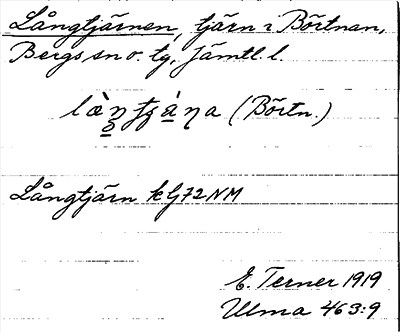 Långtjärnen, tjärn i Börtnan,
Bergs sn o. tg, Jämtl. l.
(Börtn.)
Långtjärn kG72NM
E. Terner 1919
Ulma 463:9